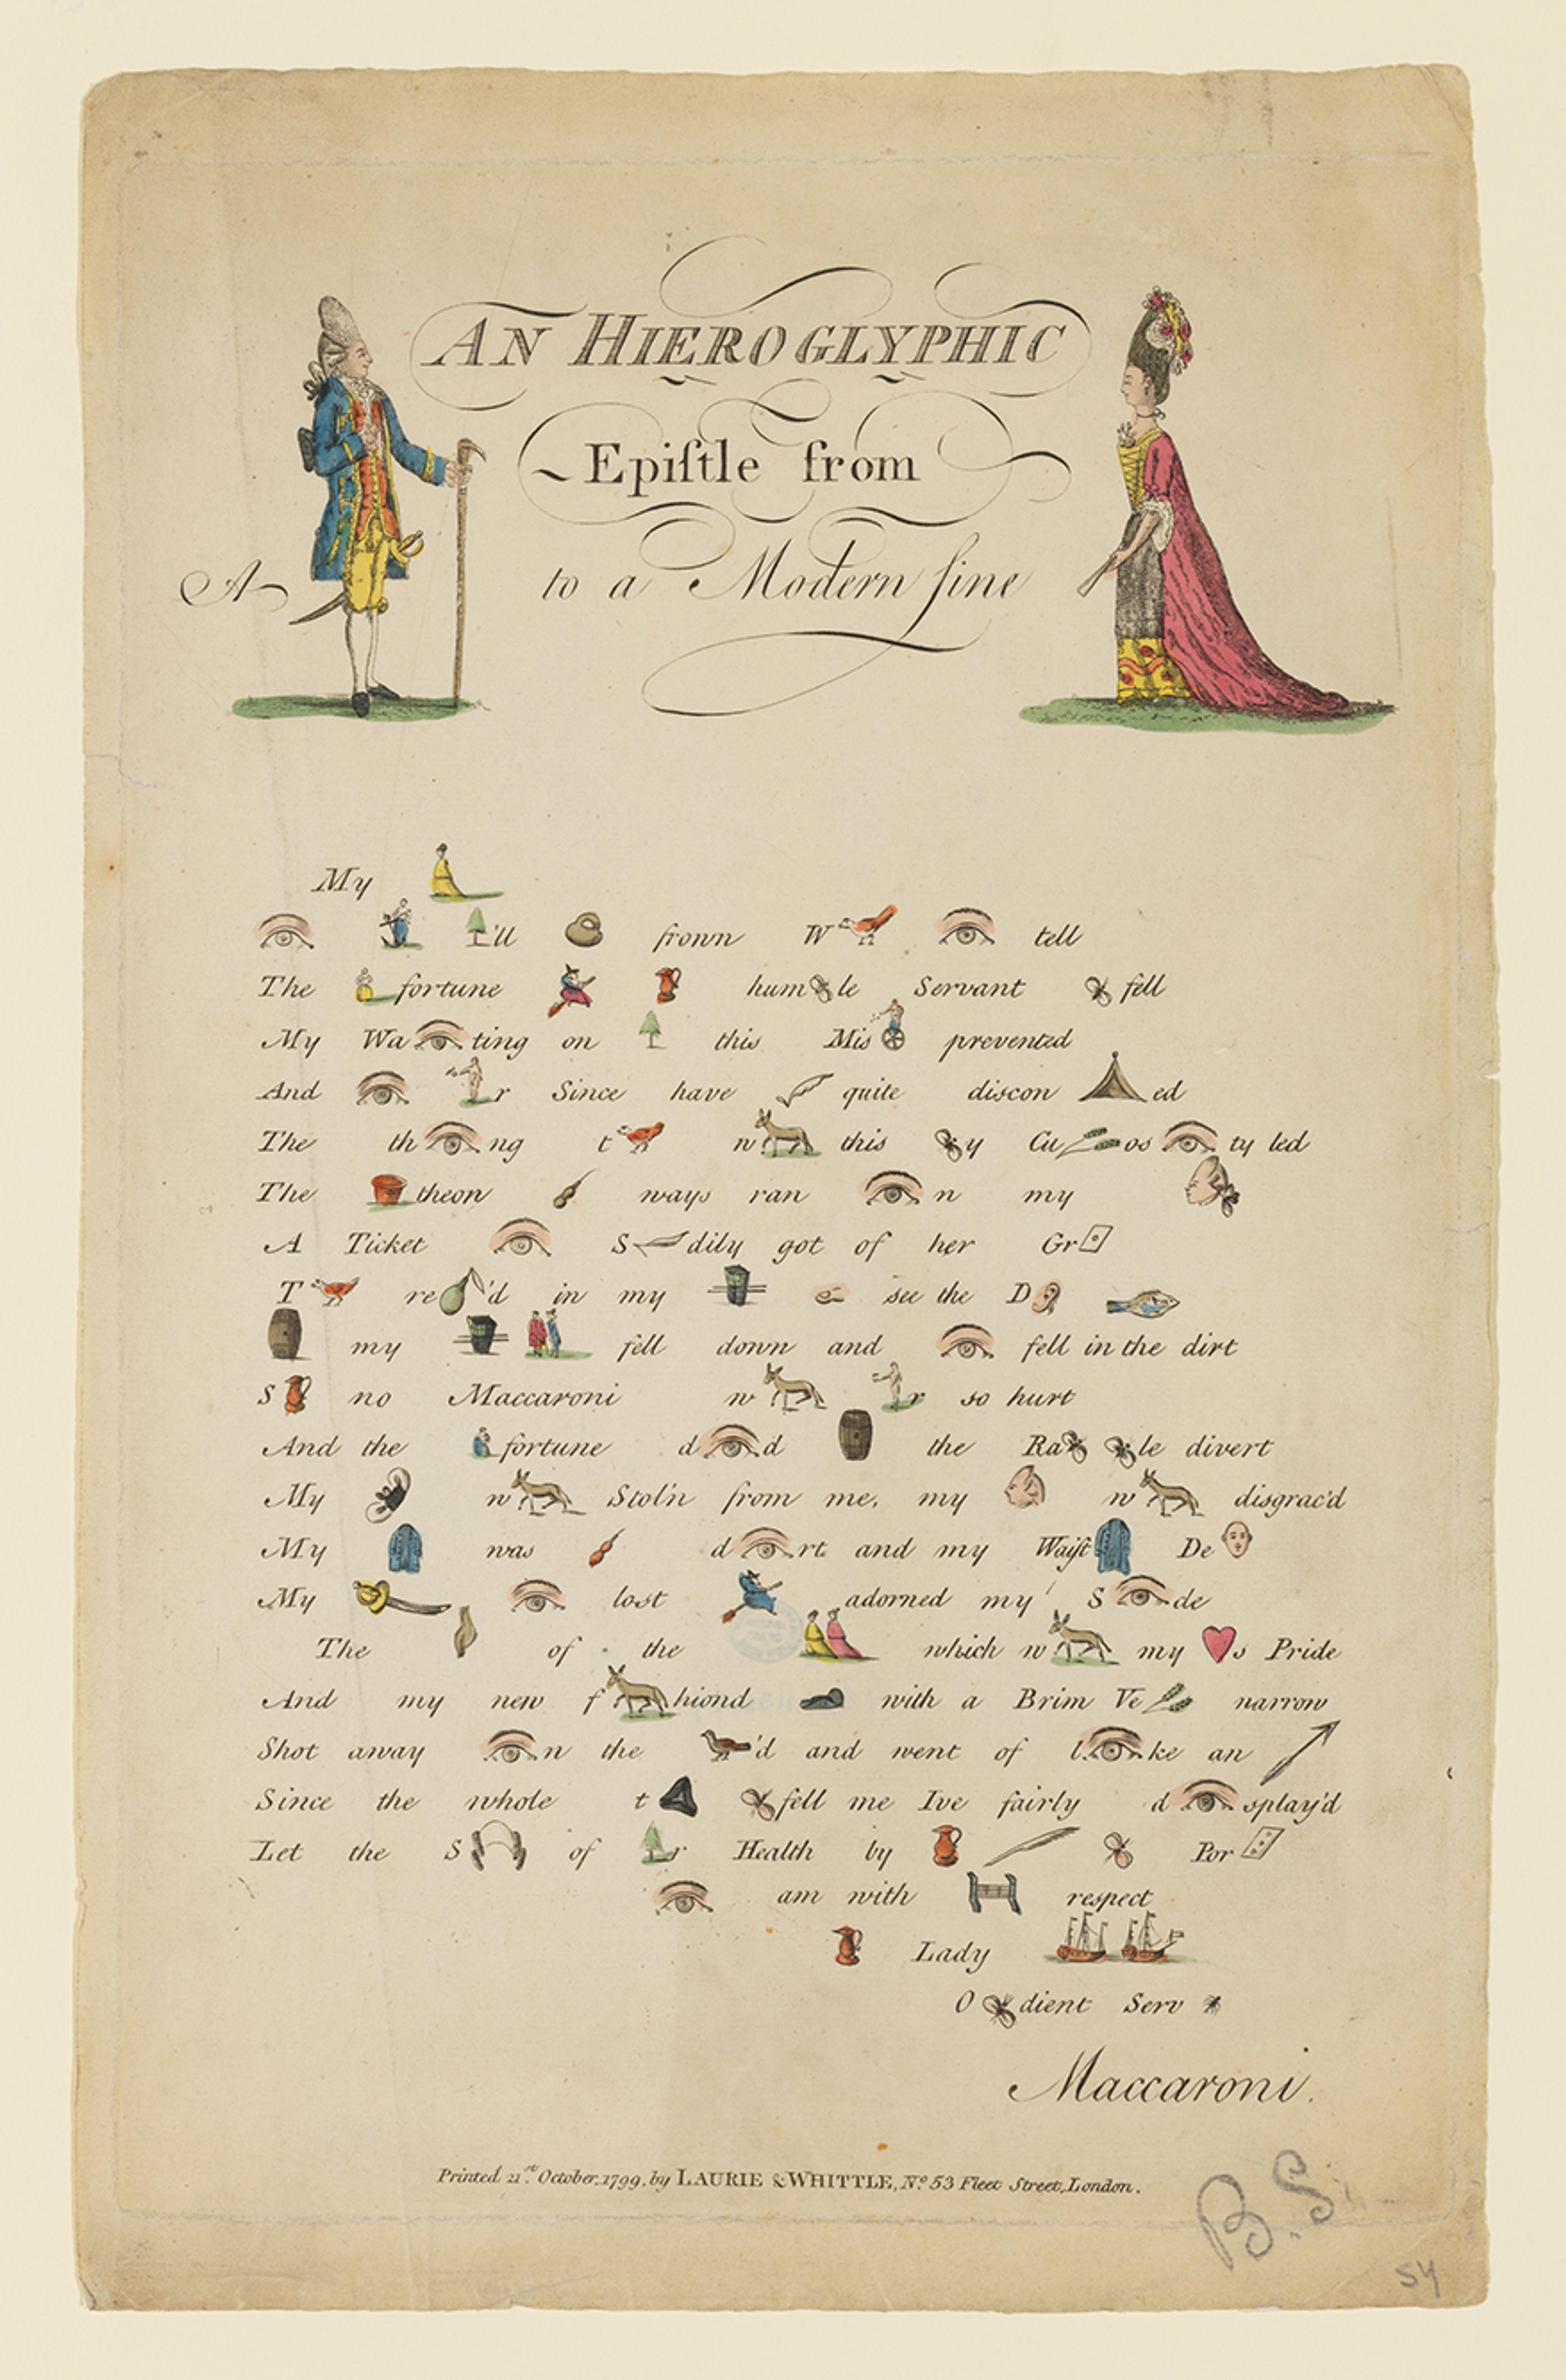 AN HIEROGLYPHIC
Epiſtle from
A to a Modern fine
My
'll frown W tell
The fortune hum le Servant fell
My Wa ting on this Mis prevented
And r Since have quite discon ed
The th ng t w this y Cu os ty led
The theon ways ran n my
A Ticket S dily got of her Gr
T re 'd in my see the D
my fell down and fell in the dirt
S no Maccaroni w r so hurt
And the fortune d d the Ra le divert
My w Stol'n from me, my w disgrac'd
My was d rt and my Waiſt De
My lost adorned my S de
The of the which w my s Pride
And my new f hiond with a Brim Ve narrow
Shot away n the 'd and went of l ke an
Since the whole t fell me Ive fairly d splay'd
Let the S of r Health by Por
am with respect
Lady
O dient Serv
Maccaroni.
Printed 21st October, 1799, by LAURIE & WHITTLE, No. 53 Fleet Street, London.
B.S
54